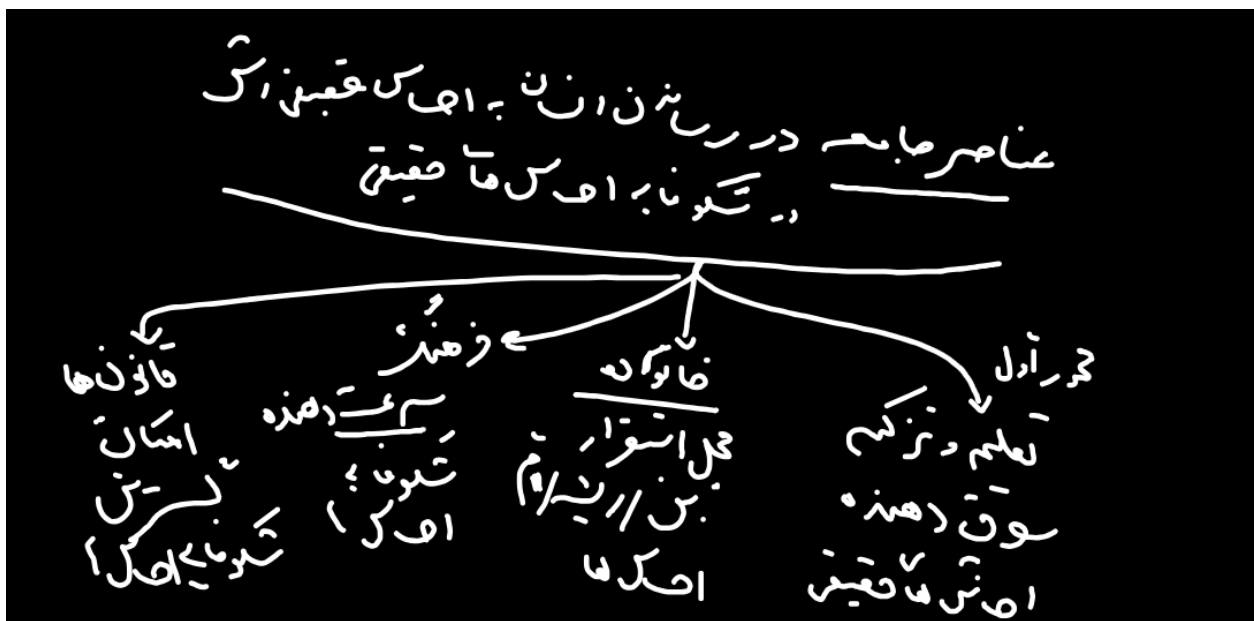 عناصر جامعه در رساندن انسان به احساس حقیقی اش
در شکوفایی احساس های حقیقی
محور اول
تعلیم و تزکیه
سوق دهنده
احساس های حقیقی
خانواده
محل استقرار
بن / ریشه /
احساس ها
فرهنگ
سرعت دهنده
شکوفایی
احساس
قانون ها
امکان
بسترین
شکوفایی احساس